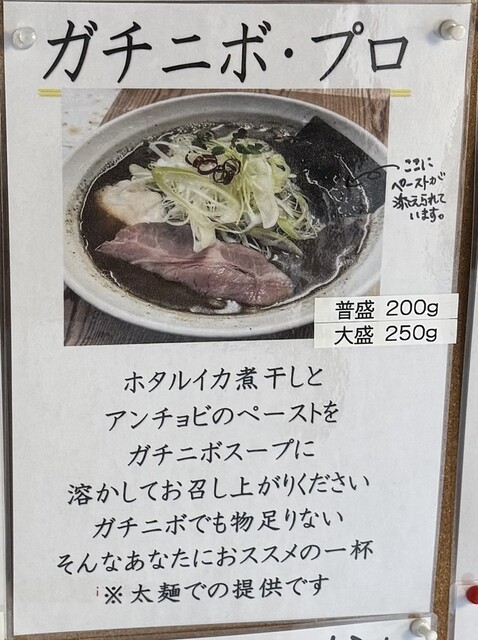 ガチニボ・プロ
ここに
ペーストが
添えられて
います。
普盛 200g
大盛 250g
ホタルイカ煮干しと
アンチョビのペーストを
ガチニボスープに
溶かしてお召し上がりください
ガチニボでも物足りない
そんなあなたにおススメの一杯
※太麺での提供です